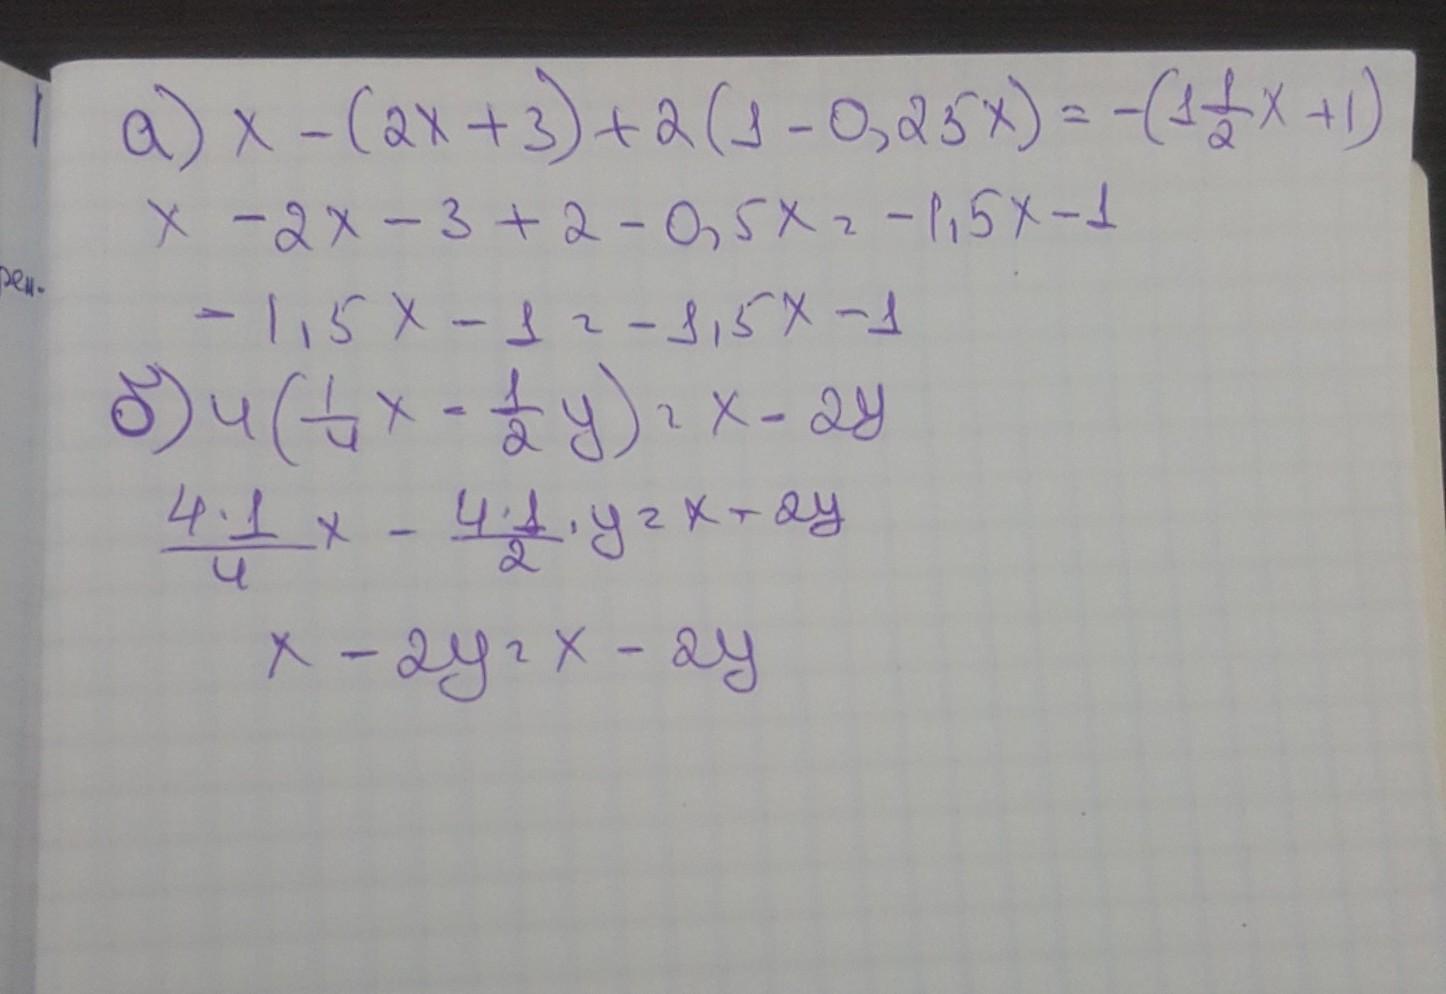 а) x - (2x + 3) + 2(1 - 0,25x) = -(1 1/2 x + 1)
x - 2x - 3 + 2 - 0,5x = -1,5x - 1
рен.
- 1,5x - 1 = - 1,5x - 1
б) 4(1/4 x - 1/2 y) = x - 2y
4·1/4 x - 4·1/2 · y = x - 2y
x - 2y = x - 2y